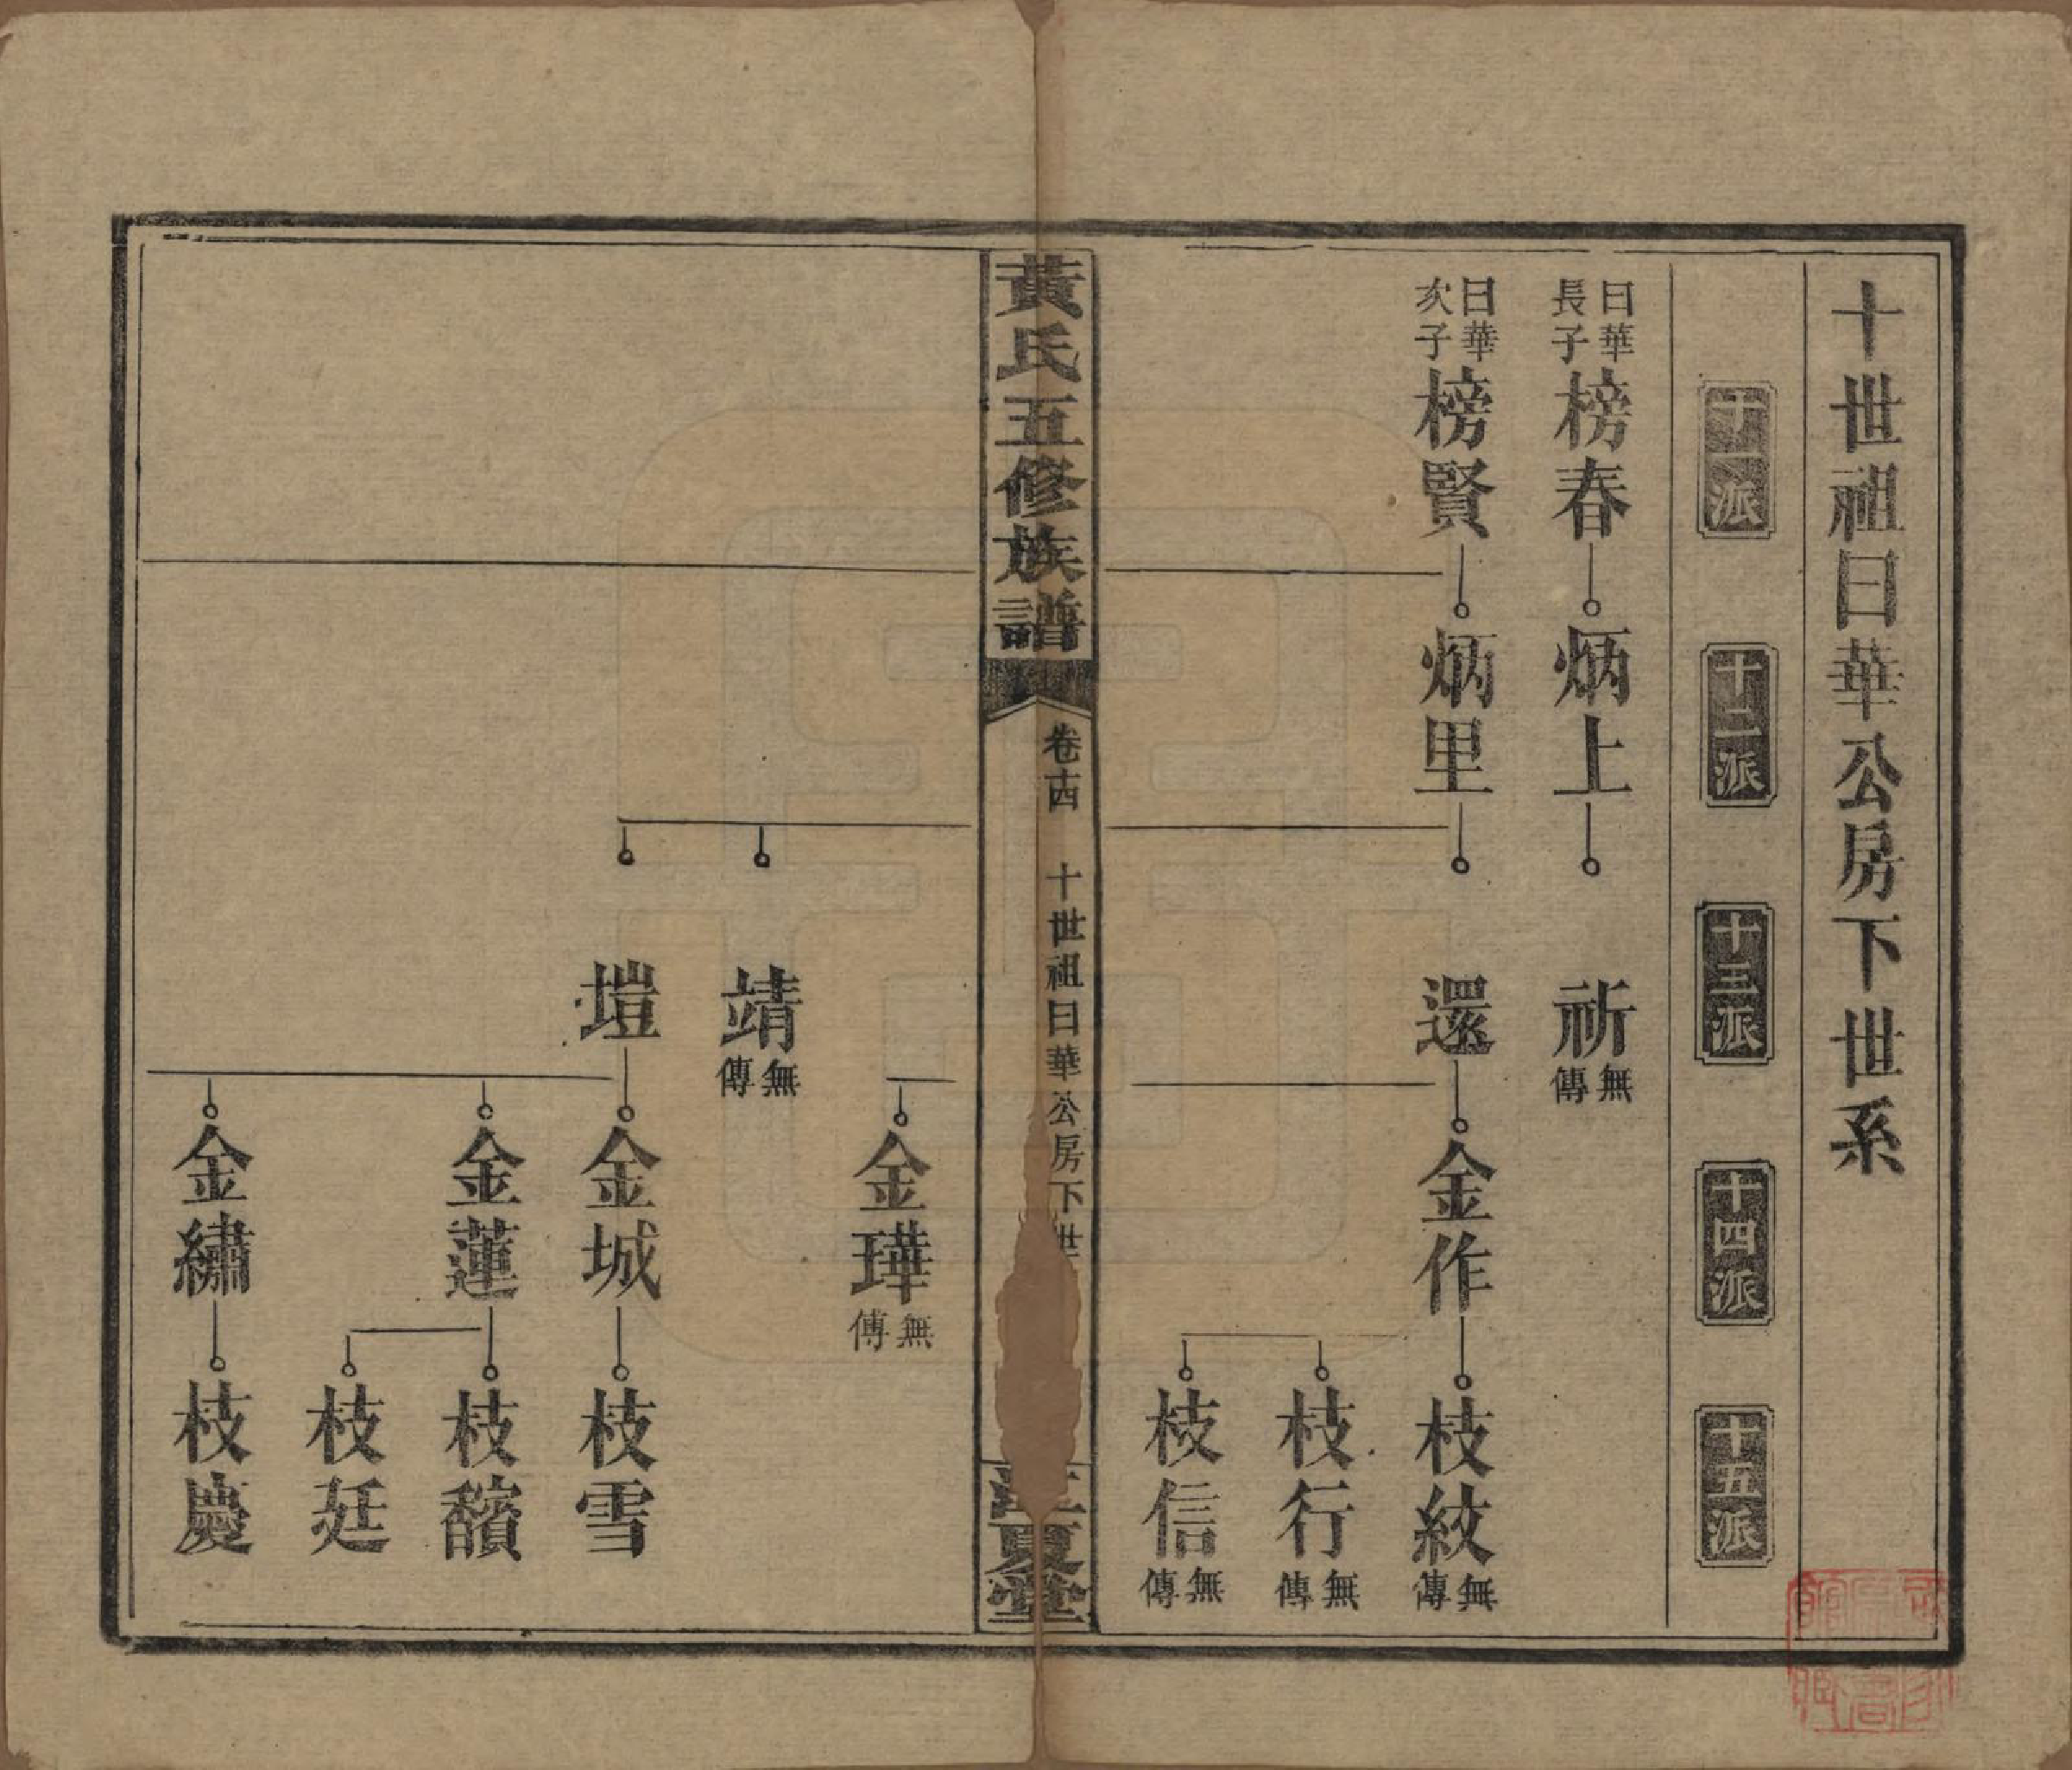 十世祖曰華公房下世系
十一派
十二派
十三派
十四派
十五派
曰華長子
榜春
炳上
祈
無傳
曰華次子
榜賢
炳里
還
金作
枝紋
無傳
枝行
無傳
枝信
無傳
黃氏五修族譜
卷十四
十世祖曰華公房下世
江夏堂
金璍
無傳
靖
無傳
塏
金城
枝雪
金蓮
枝馪
枝廷
金繡
枝慶